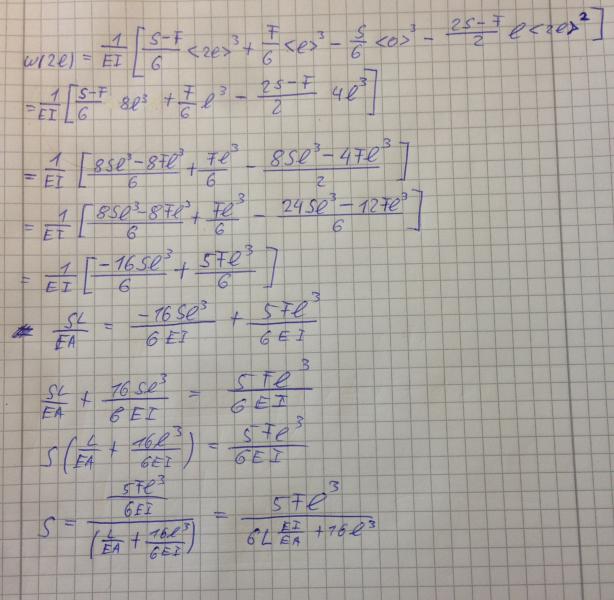 w(2l) = 1/EI [ (S-F)/6 <2l>³ + F/6 <l>³ - S/6 <0>³ - (2S-F)/2 l <2l>² ]
= 1/EI [ (S-F)/6 8l³ + F/6 l³ - (2S-F)/2 4l³ ]
= 1/EI [ (8Sl³-8Fl³)/6 + Fl³/6 - (8Sl³-4Fl³)/2 ]
= 1/EI [ (8Sl³-8Fl³)/6 + Fl³/6 - (24Sl³-12Fl³)/6 ]
= 1/EI [ -16Sl³/6 + 5Fl³/6 ]
SL/EA = -16Sl³/6EI + 5Fl³/6EI
SL/EA + 16Sl³/6EI = 5Fl³/6EI
S( L/EA + 16l³/6EI ) = 5Fl³/6EI
S = (5Fl³/6EI)/( L/EA + 16l³/6EI ) = 5Fl³/(6L EI/EA + 16l³)